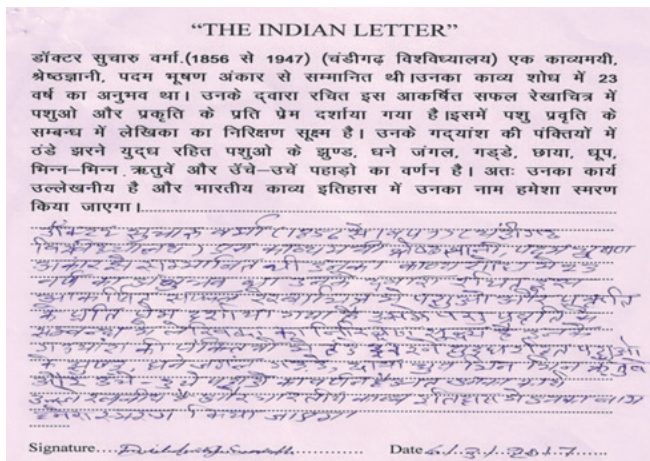 “THE INDIAN LETTER”
डॉक्टर सुचारु वर्मा.(1856 से 1947) (चंडीगढ़ विश्वविध्यालय) एक काव्यमयी,
श्रेष्ठज्ञानी, पदम भूषण अंकार से सम्मानित थी।उनका काव्य शोध में 23
वर्ष का अनुभव था। उनके द्वारा रचित इस आकर्षित सफल रेखाचित्र में
पशुओ और प्रकृति के प्रति प्रेम दर्शाया गया है।इसमें पशु प्रवृति के
सम्बन्ध में लेखिका का निरिक्षण सूक्ष्म है। उनके गद्यांश की पंक्तियों में
ठंडे झरने युद्ध रहित पशुओ के झुण्ड, धने जंगल, गड्डे, छाया, धूप,
भिन्न–भिन्न ऋतुवें और उँचे–उचें पहाड़ो का वर्णन है। अतः उनका कार्य
उल्लेखनीय है और भारतीय काव्य इतिहास में उनका नाम हमेशा स्मरण
किया जाएगा।
डॉक्टर सुचारु वर्मा
एक काव्यमयी श्रेष्ठज्ञानी, पदम भूषण
अंकार से सम्मानित थी उनका काव्य शोध में 23
वर्ष का अनुभव था उनके द्वारा रचित इस
आकर्षित सफल रेखाचित्र में पशुओ और प्रकृति
के प्रति प्रेम दर्शाया गया है इसमें पशु प्रवृति के
सम्बन्ध में लेखिका का निरिक्षण सूक्ष्म है उनके
गद्यांश की पंक्तियों में ठंडे झरने युद्ध रहित पशुओ
के झुण्ड, धने जंगल, गड्डे, छाया, धूप भिन्न भिन्न ऋतुवें
और उँचे–उचें पहाड़ो का वर्णन है अतः उनका कार्य
उल्लेखनीय है और भारतीय काव्य इतिहास में उनका नाम
हमेशा स्मरण किया जाएगा।
Signature
Date 6/3/2017